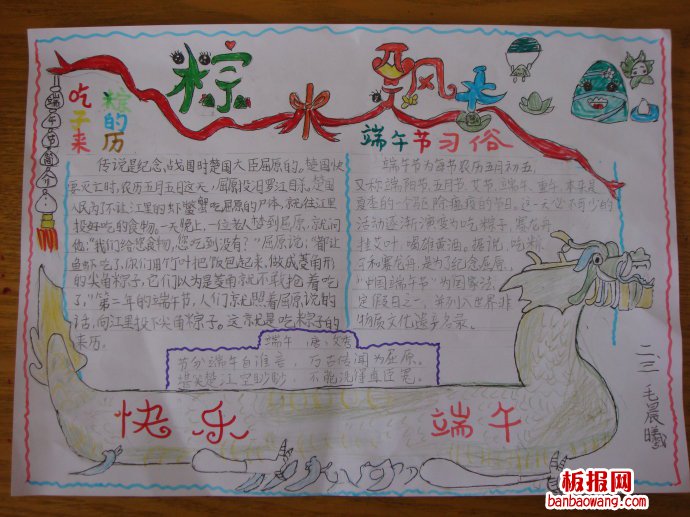 粽 飘
端午节简介:
吃粽
子的
来历
传说是纪念战国时楚国大臣屈原的。楚国快
要灭亡时,农历五月五日这天,屈原投汨罗江自杀,楚国
人民为了不让江里的虾蟹吃屈原的尸体,就往江里
投好吃的食物。一天晚上,一位老人梦到屈原,就问
他:"我们给您食物,您吃到没有?"屈原说:"都让
鱼虾吃了,你们用竹叶把饭包起来,做成菱角形
的尖角粽子,它们以为是菱角就不敢抢着吃
了。"第二年的端午节,人们就照着屈原说的
话,向江里投下尖角粽子。这就是吃粽子的
来历。
端午节习俗
端午节为每年农历五月初五,
又称端阳节、五月节、艾节、端午、重午,本来是
夏季的一个驱除瘟疫的节日。这一天必不可少的
活动逐渐演变为吃粽子,赛龙舟,
挂艾叶,喝雄黄油。据说,吃粽
子和赛龙舟,是为了纪念屈原。
"中国端午节"为国家法
定假日之一,并列入世界非
物质文化遗产名录。
端午 唐 文秀
节分端午自谁言,万古传闻为屈原。
堪笑楚江空渺渺,不能洗得直臣冤。
快乐 端午
二.三 毛晨曦
板报网
banbaowang.com